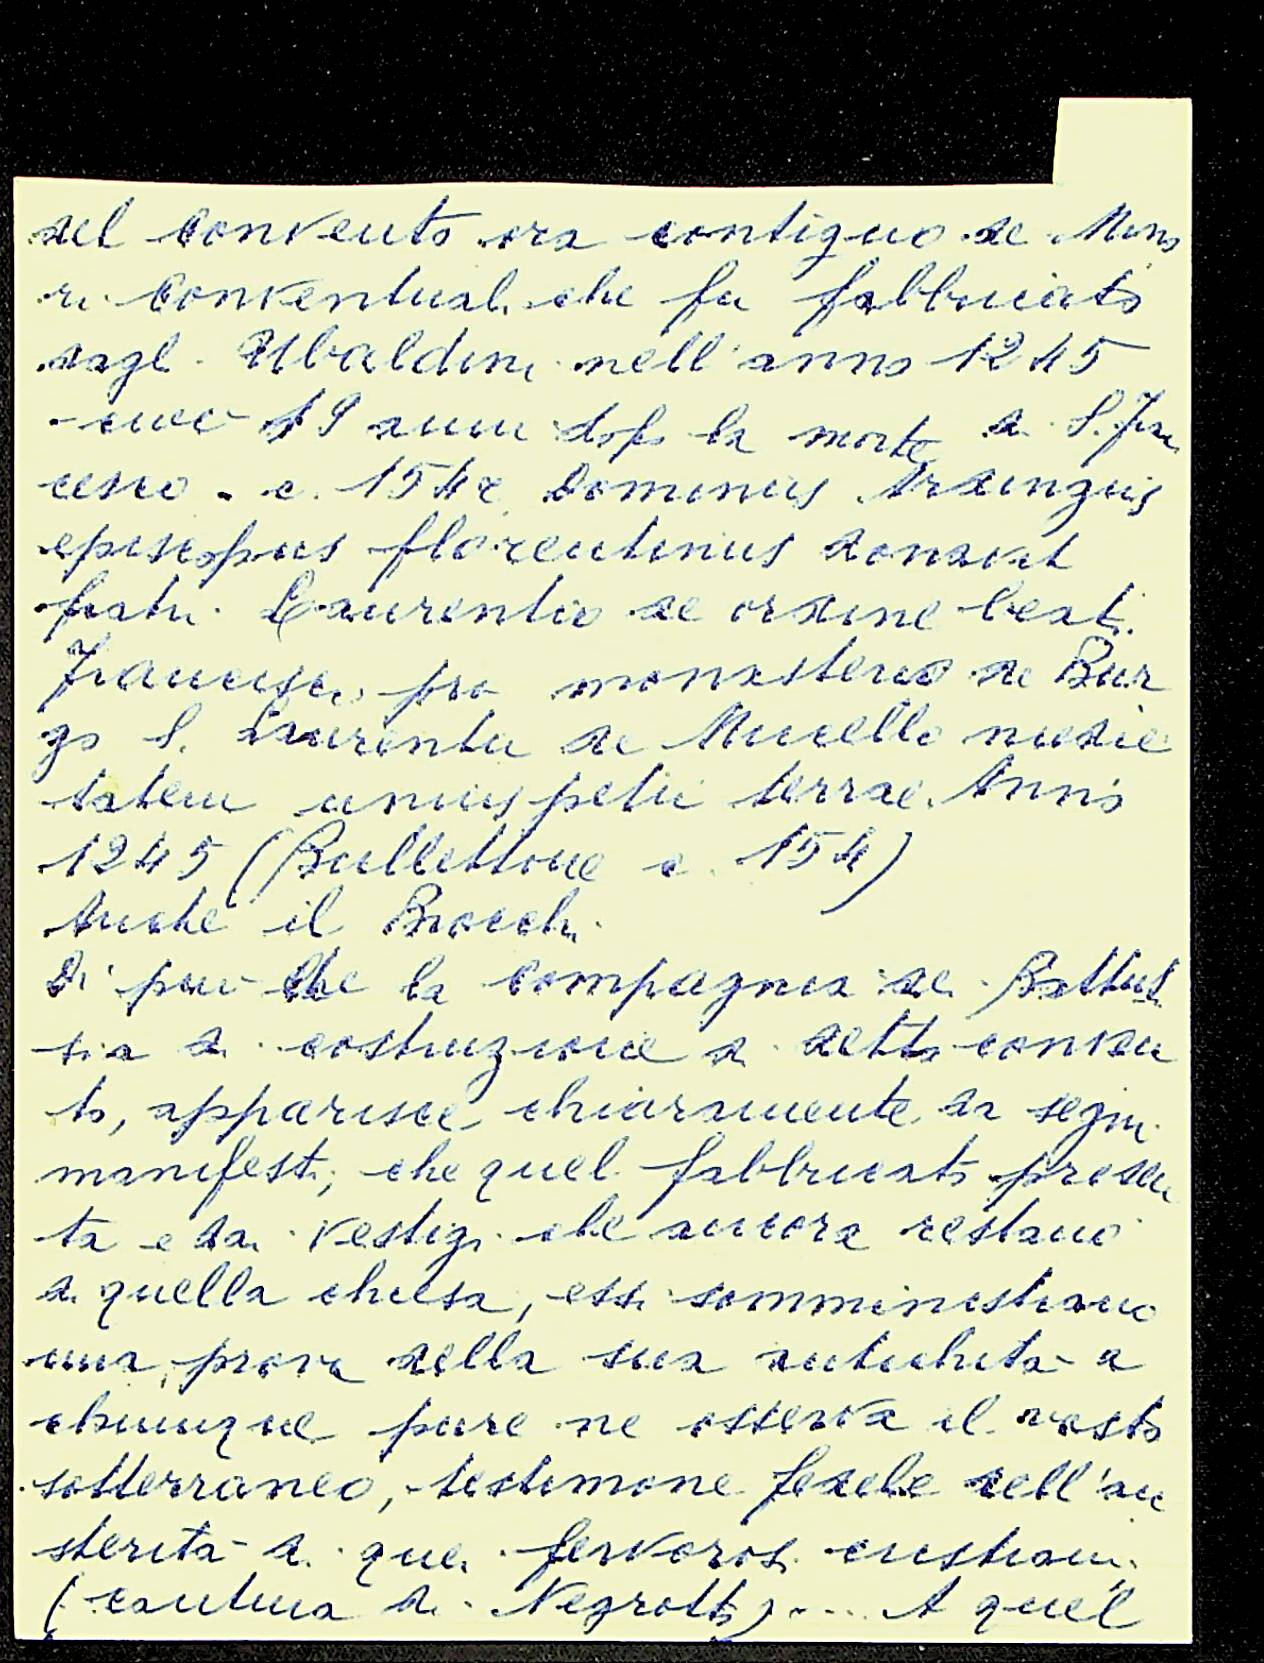 del Convento ora contiguo de Mino
ri Conventuali che fu fabbricato
dagl. Ubaldini nell'anno 1245
cioè 19 anni dopo la morte di S. Fran
cesco. c. 154 Dominus Ardinguis
episcopus florentinus donavit
fratri Laurentio de ordine beati
Francisci, pro monasterio de Bur
go S. Laurentii de Mucello medie
tatem unius petii terrae. Anno
1245 (Bullettone c. 154)
Anche il Brocchi.
Di più che la Compagnia de Battuti
sia di costruzione a detto conven
to, apparisce chiaramente da segni
manifesti, che quel fabbricato presen
ta e dai vestigi che ancora restano
di quella chiesa, essi somministrano
una prova della sua antichità a
chiunque pure ne osserva il vasto
sotterraneo, testimone fedele dell'au
sterità di quei fervorosi cristiani
(cantina di Negrotto).... A quel